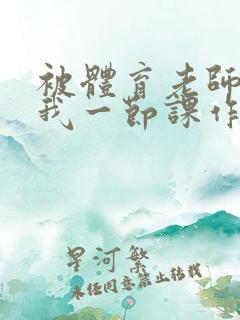 被體育老師
我一節課作
星河繁
未經同意禁止轉載